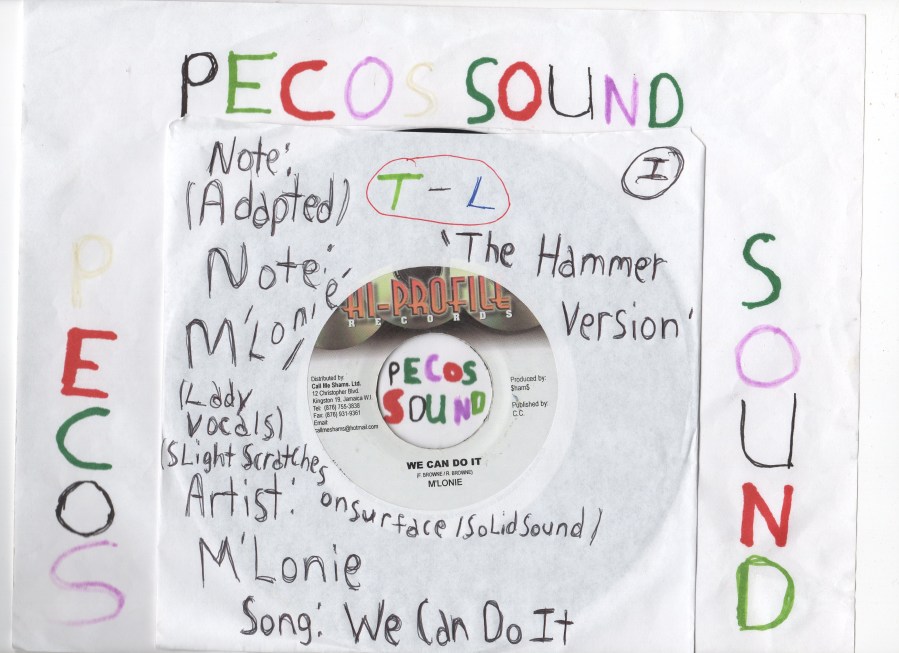 PECOS SOUND
Note:
(Adapted)
T-L
I
Note:
M'Lonié
'The Hammer
Version'
(Lady
Vocals)
(Slight Scratches
on surface / Solid Sound)
Artist:
M'Lonie
Song: We Can Do It
PECOS
SOUND
HI-PROFILE
RECORDS
Distributed by:
Call Me Shams. Ltd.
12 Christopher Blvd.
Kingston 19, Jamaica W.I.
Tel: (876) 755-3838
Fax: (876) 931-9361
Email:
callmeshams@hotmail.com
PECOS
SOUND
Produced by:
Sham$
Published by:
C.C.
WE CAN DO IT
(F. BROWNE / R. BROWNE)
M'LONIE